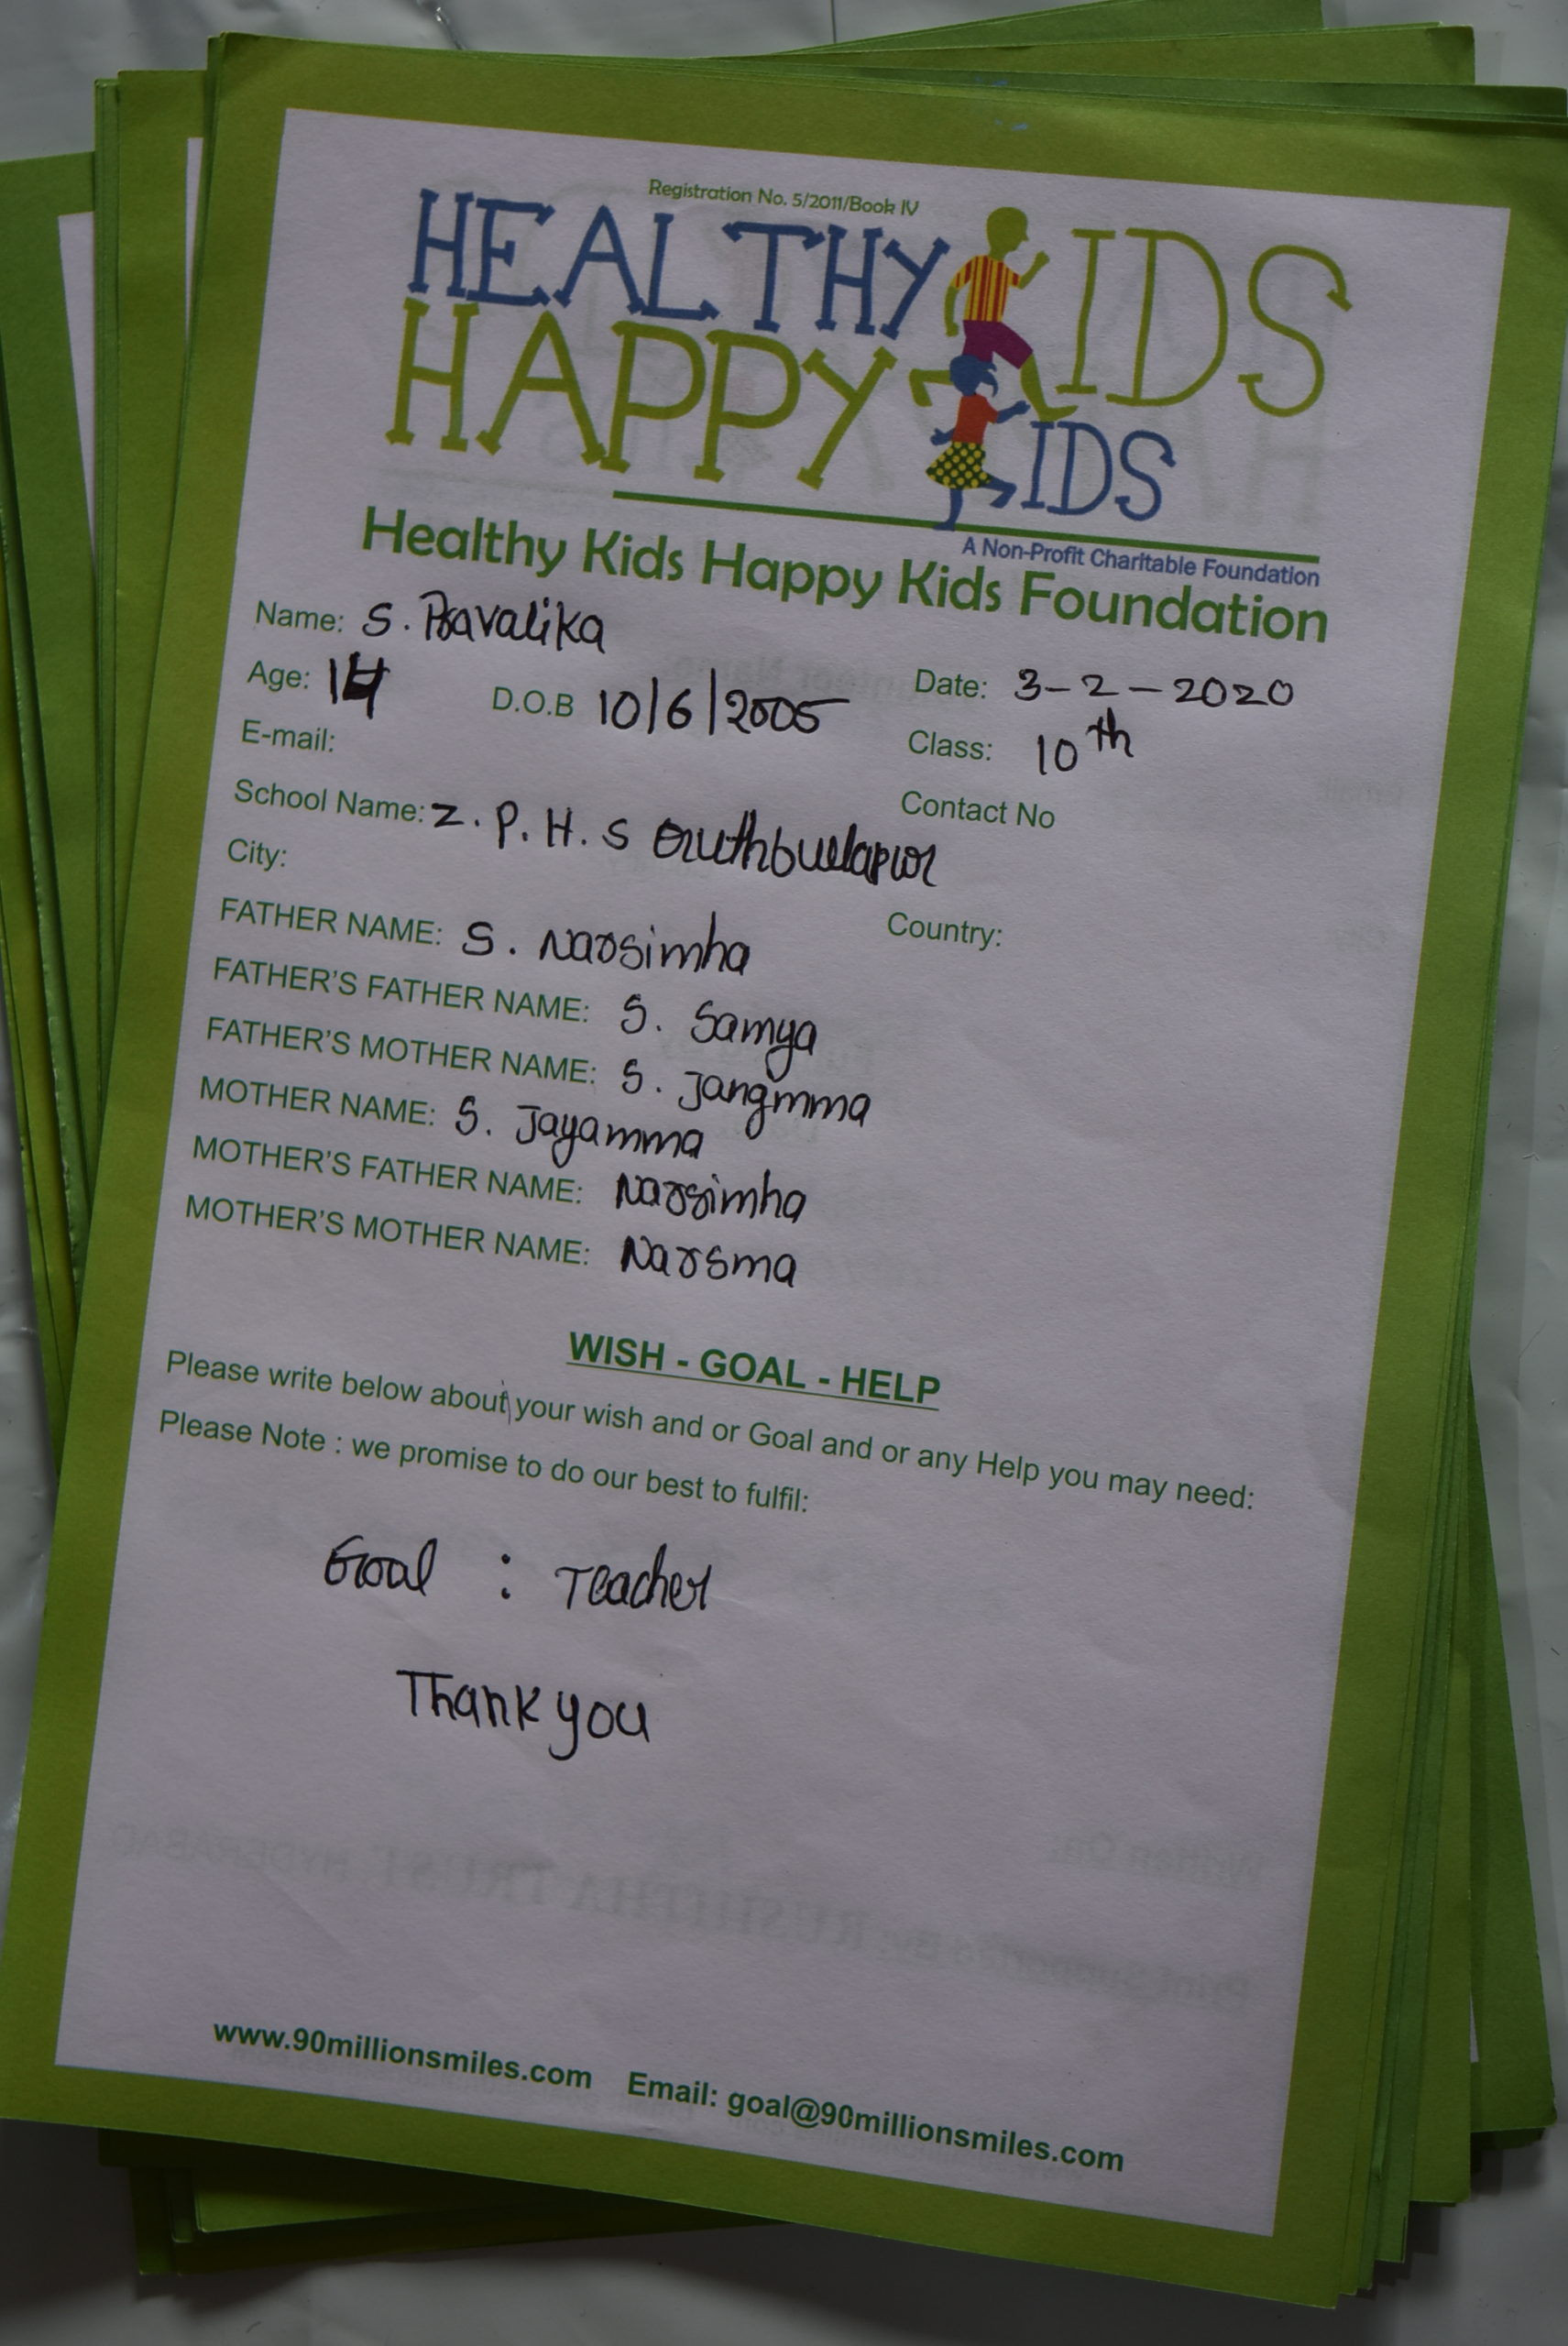 Registration No. 5/2011/Book IV
HEALTHY KIDS
HAPPY KIDS
A Non-Profit Charitable Foundation
Healthy Kids Happy Kids Foundation
Name: S. Pravalika
Age: 14 D.O.B 10/6/2005 Date: 3-2-2020
E-mail: Class: 10th
School Name: Z. P. H. S Contact No
City: Country:
FATHER NAME: S. Narsimha
FATHER'S FATHER NAME: S. Samya
FATHER'S MOTHER NAME: S. Jangmma
MOTHER NAME: S. Jayamma
MOTHER'S FATHER NAME: Narsimha
MOTHER'S MOTHER NAME: Narsma
WISH - GOAL - HELP
Please write below about your wish and or Goal and or any Help you may need:
Please Note : we promise to do our best to fulfil:
Goal : Teacher
Thank you
www.90millionsmiles.com Email: goal@90millionsmiles.com